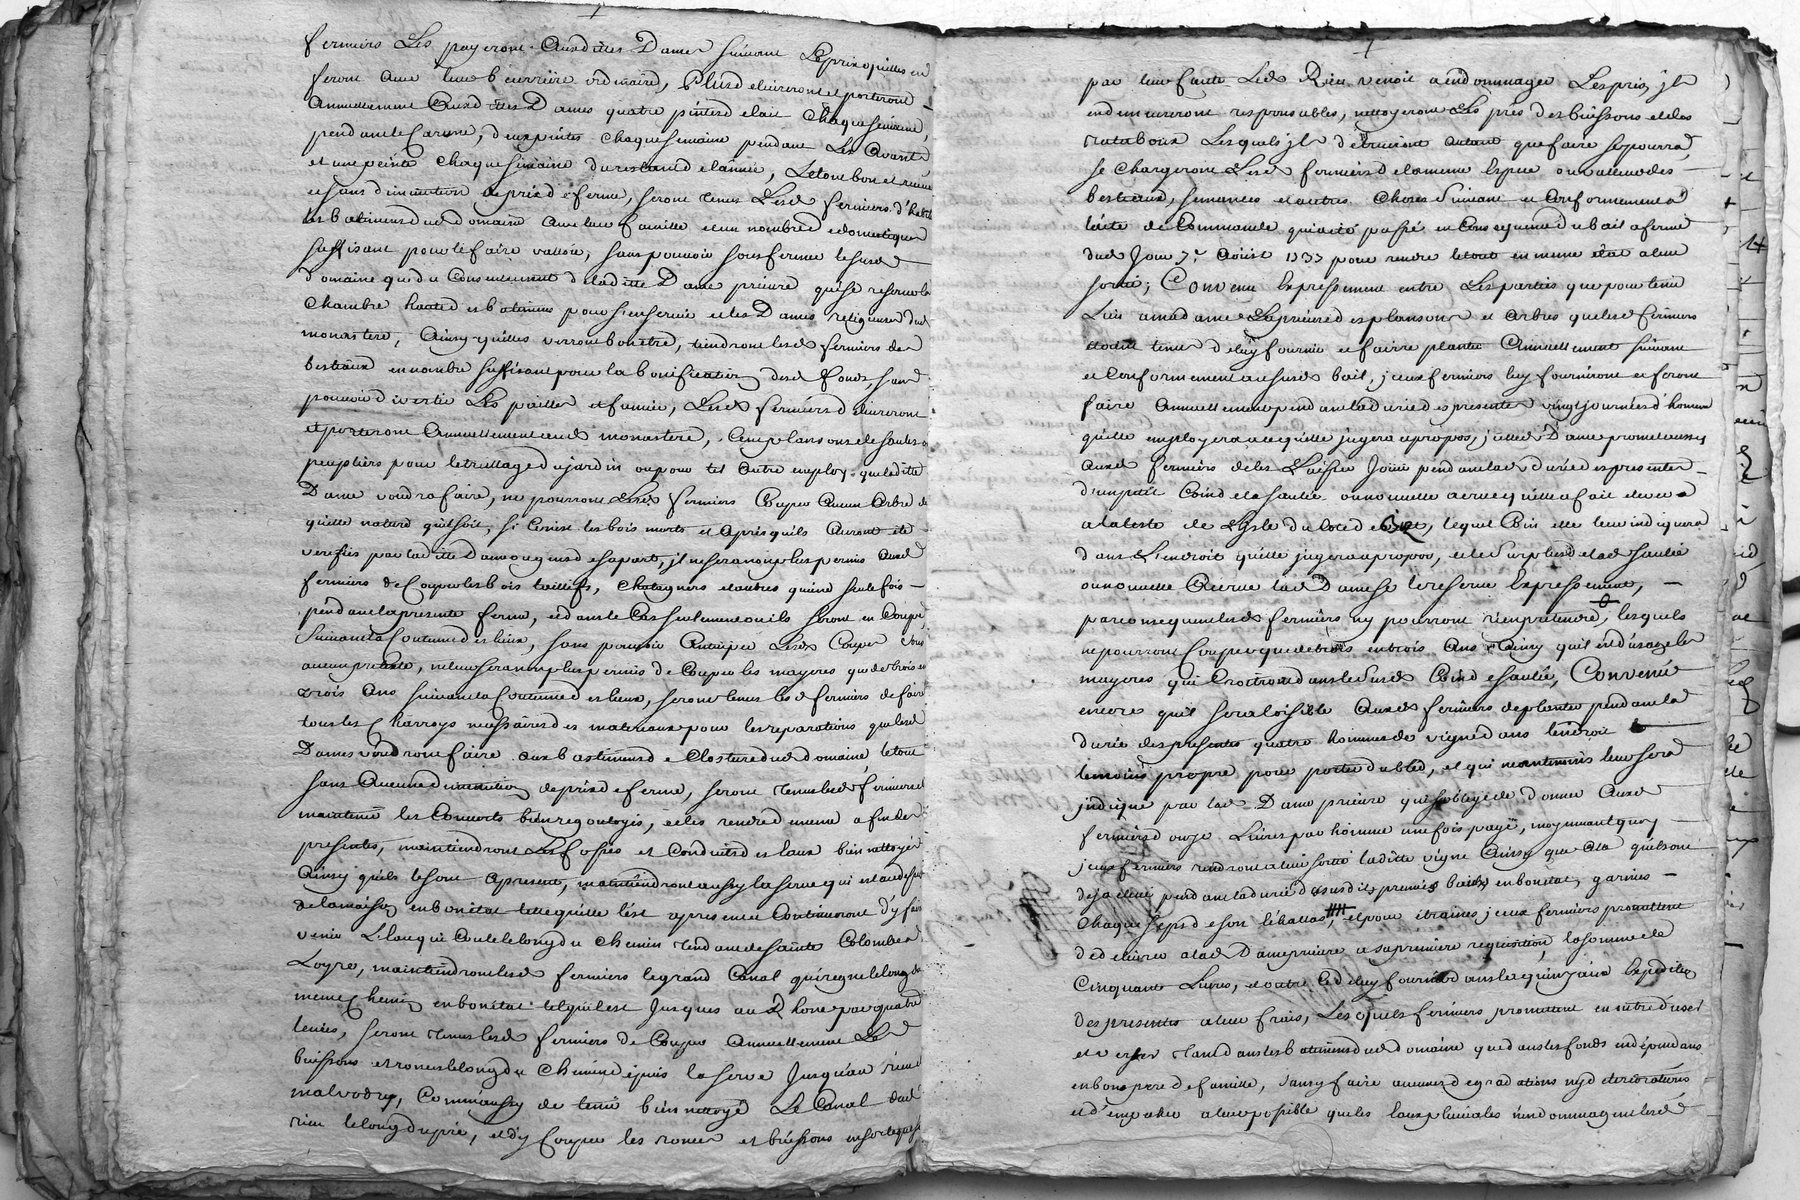 fermiers Les payeront Ausdittes Dames suivant Le prix qu'elles en
feront Avec leur beurriere ordinaire, Plus delivreront et porteront
Annuellement Auxd ittes Dames quatre pintes de lait Chaque semaine,
pendant le Careme, deux pintes chaque semaine pendant Les Avants
et une peinte Chaque semaine du restand de l'année, Le tout bon et
et sans diminution de prix de ferme, seront tenus Lesd fermiers d'habiter
les batiments dud domaine Avec leur famille et un nombre de domestiques
suffisant pour le faire valloir, sans pouvoir sousfermer le susd
domaine que du Consentement de la ditte Dame prieure qui se reserve la
Chambre haute des batiments pour s'en servir et les Dames religieuses dud
monastere, Ainsy qu'elles verront bon etre, tiendront lesd fermiers des
bestiaux en nombre suffisant pour la bonification desd fonds, sans
pouvoir divertir Les pailles et fumier, Lesd fermiers delivreront
et porteront Annuellement aud monastere, Cent plansons de saules ou
peupliers pour le treillage du jardin ou pour tel Autre employ que laditte
Dame voudra faire, ne pourront Lesd fermiers Couper Aucun Arbre de
quelle nature qu'il soit, si ce n'est les bois morts et Apres qu'ils Auront été
verifiés par laditte Dame ou gens de sa part, il ne sera non plus permis Auxd
fermiers de Couper les bois taillifs, Chatagners et autres qu'une seule fois
pendant la presente ferme, et dans le Cas seulement ou ils seront en Coupe,
Suivant la Coutume des lieux, sans pouvoir Anticiper Lesd Coupes sous
aucun pretexte, ne leur sera non plus permis de Couper les mayeres que de trois en
trois Ans suivant la Coutume des lieux, seront tenus lesd fermiers de faire
tous les Charroys necessaires des materiaux pour les reparations que lesd
Dames voudront faire aux bastiments et Closture dud domaine, le tout
sans Aucune diminution de prix de ferme, seront tenus lesd fermiers de
maintenir les Couverts bien regoutoyés, et les rendre de meme a fin des
presentes, maintiendront Les fossés et Conduits des eaux bien nettoyés
Ainsy qu'ils le sont Apresent, maintiendront aussy la serve qui est au dessus
de la maison en bon état telle qu'elle l'est apresent et Continueront d'y faire
venir L'eau qui Coule le long du Chemin tendant de sainte Colombe a
Loyre, maintiendront lesd fermiers le grand Canal qui regne le long du
meme Chemin en bon état tel qu'il est Jusques au Rhone par quatre
tenues, seront tenus lesd fermiers de Couper Annuellement Les
buissons et ronces le long du Chemin depuis la serve Jusqu'au rieu
malvoduy, Comm'aussy de tenir bien nettoyé Le Canal dud
rieu le long du pré, et d'y Couper les ronces et buissons en sorte que si
par leur faute Led Rieu venoit a endommager Les prés, ils
en demeureront responsables, nettoyeront Les prés des buissons et des
rataboux Lesquels ils detruiront autant que faire se pourra,
se Chargeront Lesd fermiers de la meme Espece ou valleur des
bestiaux, semences et autres Choses Suivant et Conformement a
l'acte de Commande qui a été passé en Consequence du bail a ferme
dud Jour 7r Aoüst 1737 pour rendre le tout en meme état a leur
sortie; Convenu Expressement entre Les parties que pour tenir
Lieu a madame La prieure des plansons et Arbres que lesd fermiers
etoient tenus de luy fournir et faire planter Annuellement suivant
et Conformement au susd bail, iceux fermiers luy fourniront et feront
faire Annuellement pendant la durée des presentes vingt journées d'homme
qu'elle employera a ce qu'elle jugera apropos, icelle Dame promet aussy
Auxd fermiers de les Laisser Jouir pendant lad durée des presentes
d'un petit Coin de la saulée ou nouvelle accrue qu'elle a fait elever a
a la teste de L'isle du Coté de , lequel Coin elle leur indiquera
dans L'endroit qu'elle jugera apropos, et le Surplus de lad Saulée
ou nouvelle Accrue lad Dame se le reserve Expressement,
par consequent lesd fermiers n'y pourront rien pretendre, lesquels
ne pourront Couper que de trois en trois Ans Ainsy qu'il est d'usage les
mayeres qui Croitront dans le Susd Coin de Saulée, Convenu
encore qu'il sera loisible Auxd fermiers de planter pendant la
durée des presentes quatre hommées de vigne dans l'endroit
le moins propre pour porter du bled, et qui neantmoins leur sera
indiqué par lad Dame prieure qui s'oblige de donner Auxd
fermiers onze Livres par homme une fois payé, moyennant quoy
iceux fermiers rendront a leur sortie laditte vigne Ainsy que Cela qu'ils ont
deja elevé pendant la durée du susdit premier bail en bon état, garnies
Chaque seps de son échallas, et pour étraines iceux fermiers promettent
de delivrer a lad Dame prieure a sa premiere requisition, la somme de
Cinquante Livres, et outre Ce de luy fournir dans la quinzaine Expedition
des presentes a leur frais, Lesquels fermiers promettent en outre d'user
et verser tant dans les batiments dud domaine que dans les fonds en dépendans
en bons pere de famille, sans y faire aucunes degradations ny deteriorations
et d'empecher a leur possible que les Eaux pluviales n'endommagent lesd